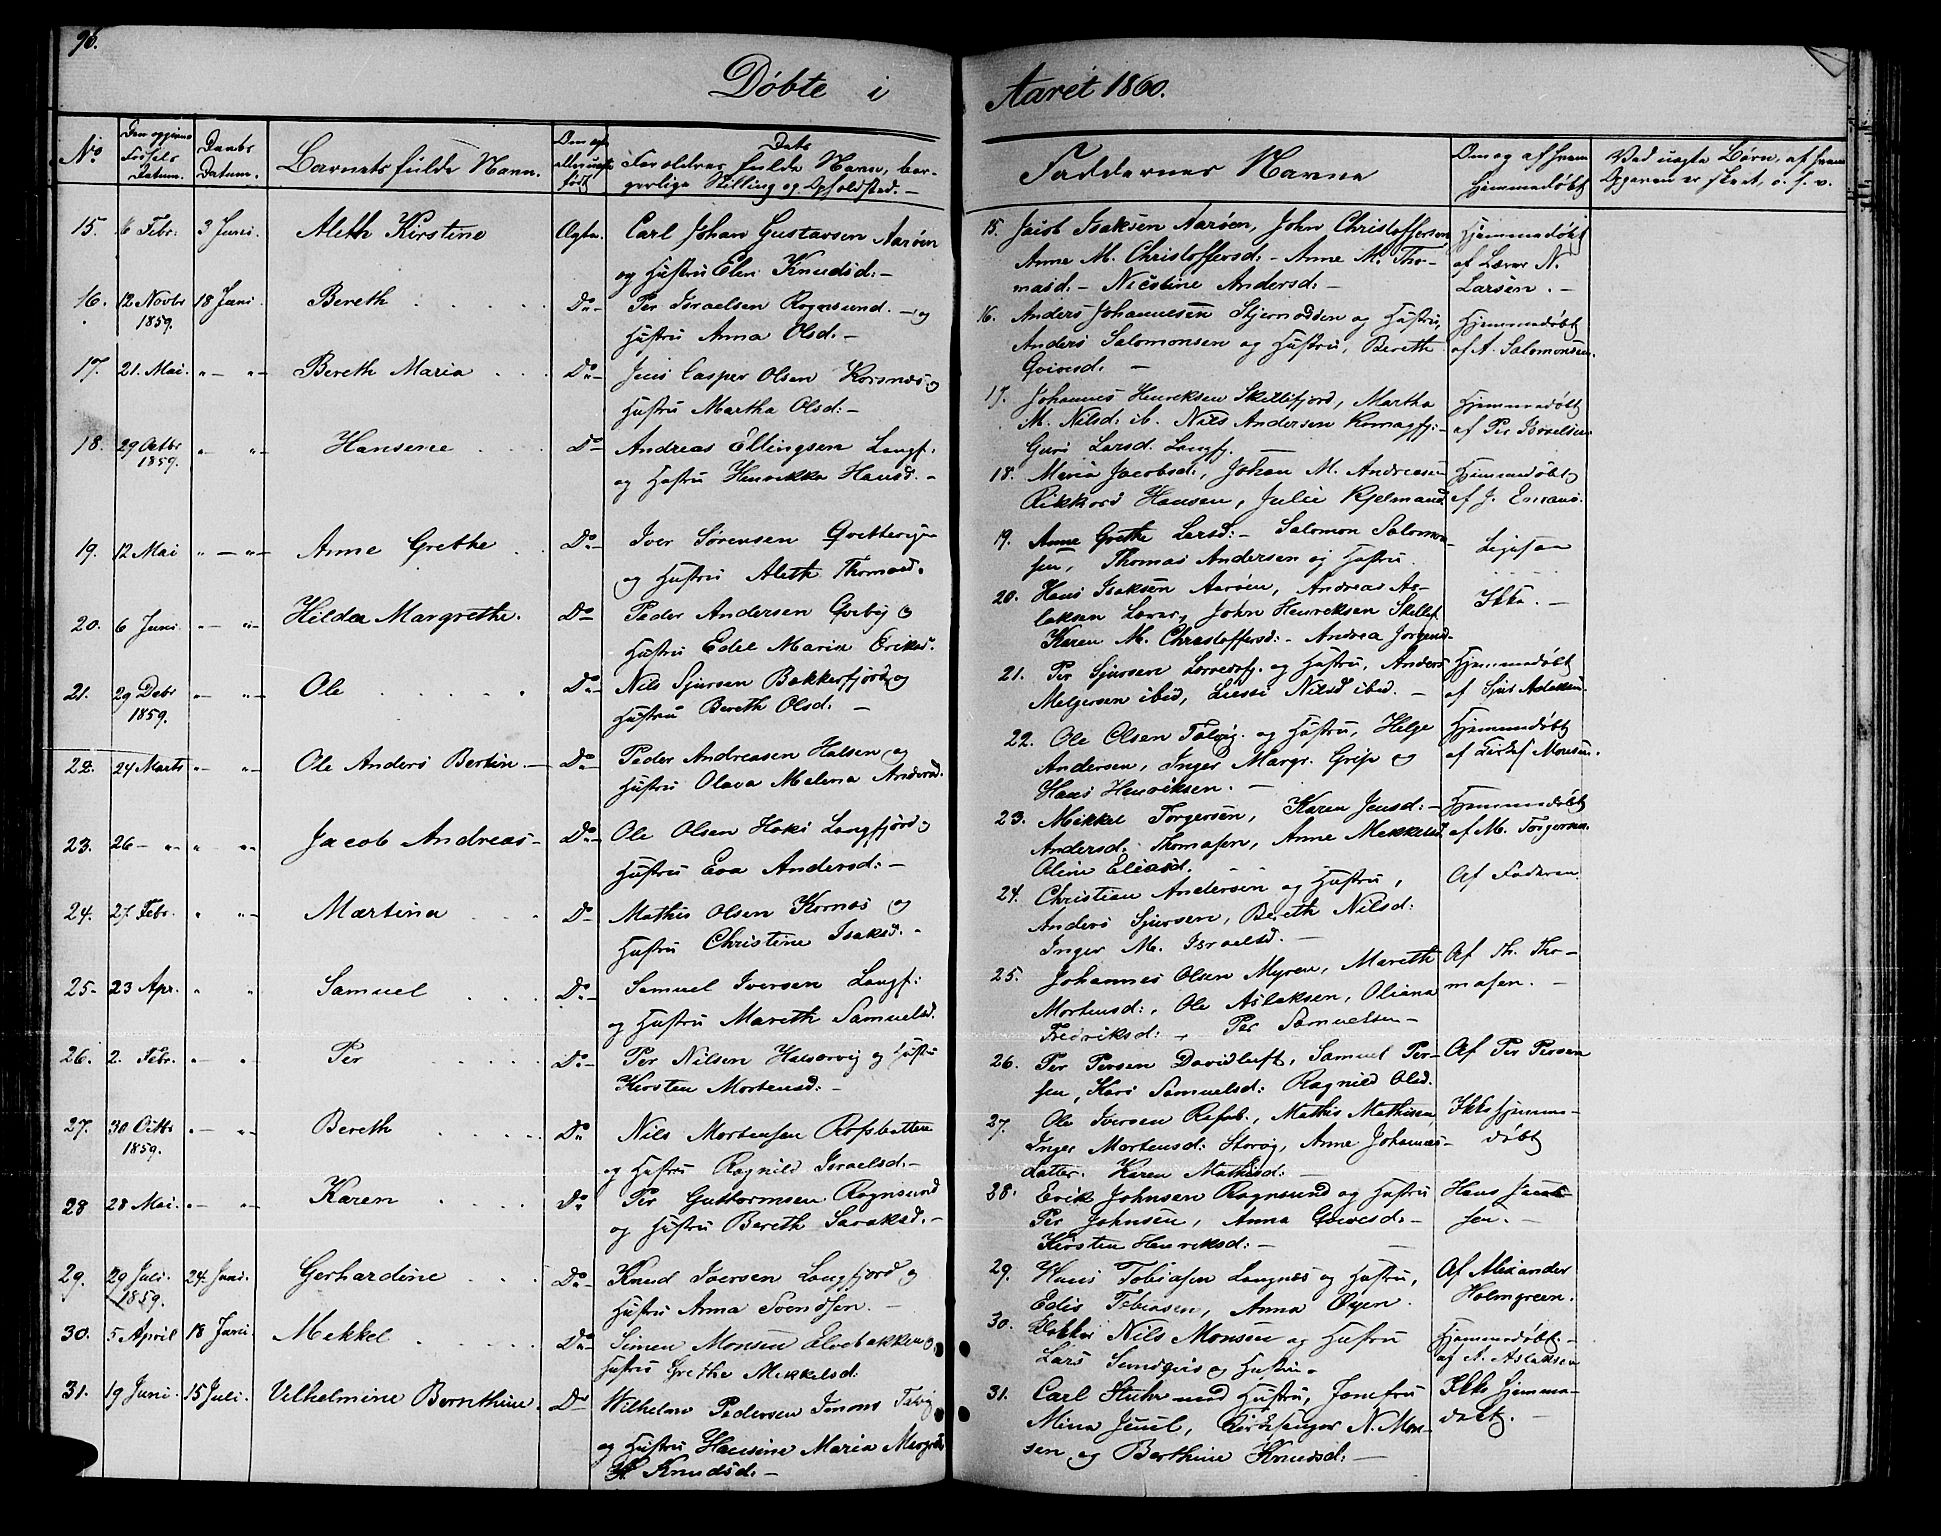 96.
Døbte i Aaret 1860.
No
Den opgivne Fødsels Datum.
Daabs Datum.
Barnets fulde Navn.
Om ægte eller uægte født
Dets Forældres fulde Navn, borgerlige Stilling og Opholdsted.
Faddernes Navne
Om og af hvem hjemmedøbt
Ved uægte Børn, af hvem Opgaven er skeet, o. s. v.
15. 6 Febr: 3 Juni. Aleth Kirstine Ægte. Carl Johan Gustavsen Aarøen
og Hustru Elen Knudsd:-
16. 12 Novbr 18 Juni. Bereth Do- Per Israelsen Rognsund. - og
1859. Hustru Anna Olsd:-
17. 21. Mai. " - " - Bereth Maria Do- Jens Casper Olsen Korsnæs og
Hustru Martha Olsd:-
18. 29 Octbr " " - Hansene Do- Andreas Ellingsen Langf:
1859. og Hustru Henrikka Hansd. -
19. 12 Mai " - " - Anne Grethe Do- Iver Sørensen
og Hustru Aleth Thomasd.
20. 6 Juni. " - " - Hilda Margrethe. Do- Peder Andersen Qvebÿ og
Hustru Edel Maria Eriksd.
21. 29 Debr " - " - Ole Do- Nils Sjursen Bakkerfjord og
1859. Hustru Bereth Olsd: -
22. 24 Marts " - " - Ole Anders Bertin. - Do- Peder Andreasen Halsen og
Hustru Olava Malena Andersd.
23. 26 - " - " " - Jacob Andreas - Do- Ole Olsen Langfjord og
Hustru Eva Andersd: -
24. 27 Febr. " " - Martina Do- Mathis Olsen Kornæs og
Hustru Christine Isaksd. -
25- 23 Apr. " " Samuel Do- Samuel Iversen Langf:
og Hustru Mareth Samuelsd.
26. 2. Febr. " - " Per Do- Per Nilsen og Hustru
Kirsten Mortensd: -
27. 30 Octbr " - " - Bereth Do Nils Mortensen
1859. og Hustru Ragnild Israelsd: -
28 28 Mai. " - " - Karen Do Per Guttormsen Rognsund
og Hustru Bereth
29. 29 Juli. 24 Juni. Gerhardine Do- Knud Iversen Langfjord og
1859. Hustru Anna Svendsen. -
30. 5 April 18 Juni. Mekkel Do- Simen Monsen Elvebakken og
Hustru Grethe Mekkelsd:
31. 19 Juni. 15 Juli. Vilhelmine Bernthine. Do- Wilhelm Pedersen Talvig
og Hustru Hansine Maria
Knudsd: -
15. Jacob Isaksen Aarøen, John Christoffersen Hjemmedøbt
Anne M. Christoffersd: - Anne M. Tho- af Lærer N.
masd: - Nicoline Andersd: - Larsen. -
16. Anders Johannesen og Hustru, Hjemmedøbt
Anders Salomonsen og Hustru, Bereth af A. Salomonsen.
17. Johannes Henriksen Skillefjord, Martha Hjemmedøbt
M. Nilsd: ib. Nils Andersen Komagfj:- af Per Israelsen
Guri Larsd. Langfj.
18. Maria Jacobsd:, Johan M. Andreasen Hjemmedøbt
Rikkard Hansen, Julie af J.
19. Anne Grethe Larsd:- Salomon Salomon- Ligesaa
sen, Thomas Andersen og Hustru.
20. Hans Isaksen Aarøen, Andreas As- Ikke. -
laksen Lærer, John Henriksen Skillef.
Karen M. Christoffersd:- Andrea Jørgensd-
21. Per Sjursen og Hustru, Anders Hjemmedøbt
Melgersen ibid, Nilsd ibid. - af Sjur Aslaksen.
22. Ole Olsen Talvig. og Hustru, Helge Hjemmedøbt
Andersen, Inger Margr. og af Monsen.
Hans Henriksen. -
23. Mikkel Torgersen, Karen Jensd:- Hjemmedøbt
Andersd: Thomasen, Anne Mekkelsd af M. Torgersen.
Oline Eliasd.
24. Christian Andersen og Hustru, Af Faderen.
Anders Sjursen, Bereth Nilsd:
Inger M. Israelsd. -
25. Johannes Olsen Myren, Mareth Af Th. Tho-
Mortensd:, Ole Aslaksen, Oliana masen. -
Fredriksd: - Per Samuelsen -
26. Per Persen Davidluft, Samuel Per- Af Per Persen
sen, Kari Samuelsd: Ragnild Olsd.
27. Ole Iversen Refsb., Mathis Mathisen Ikke hjemme-
Inger Mortensd: Storvig, Anne Johannes- døbt
datter. Karen Mathisd: -
28. Erik Johnsen Rognsund og Hustru Hans
Per Johnsen, Anna sen. -
Kirsten Henriksd: -
29. Hans Tobiasen Langnæs og Hustru, Af Alexander
Edis Tobiasen, Anna Øyen. Holmgreen.
30. Klokker Nils Monsen og Hustru Hjemmedøbt:-
Lars og Hustru. af A. Aslaksen
31. Carl Stuhr med Hustru, Jomfru Ikke hjemme-
Mina Juul, Kirkesanger N. Mon- døbt. -
sen og Berthine Knudsd: -